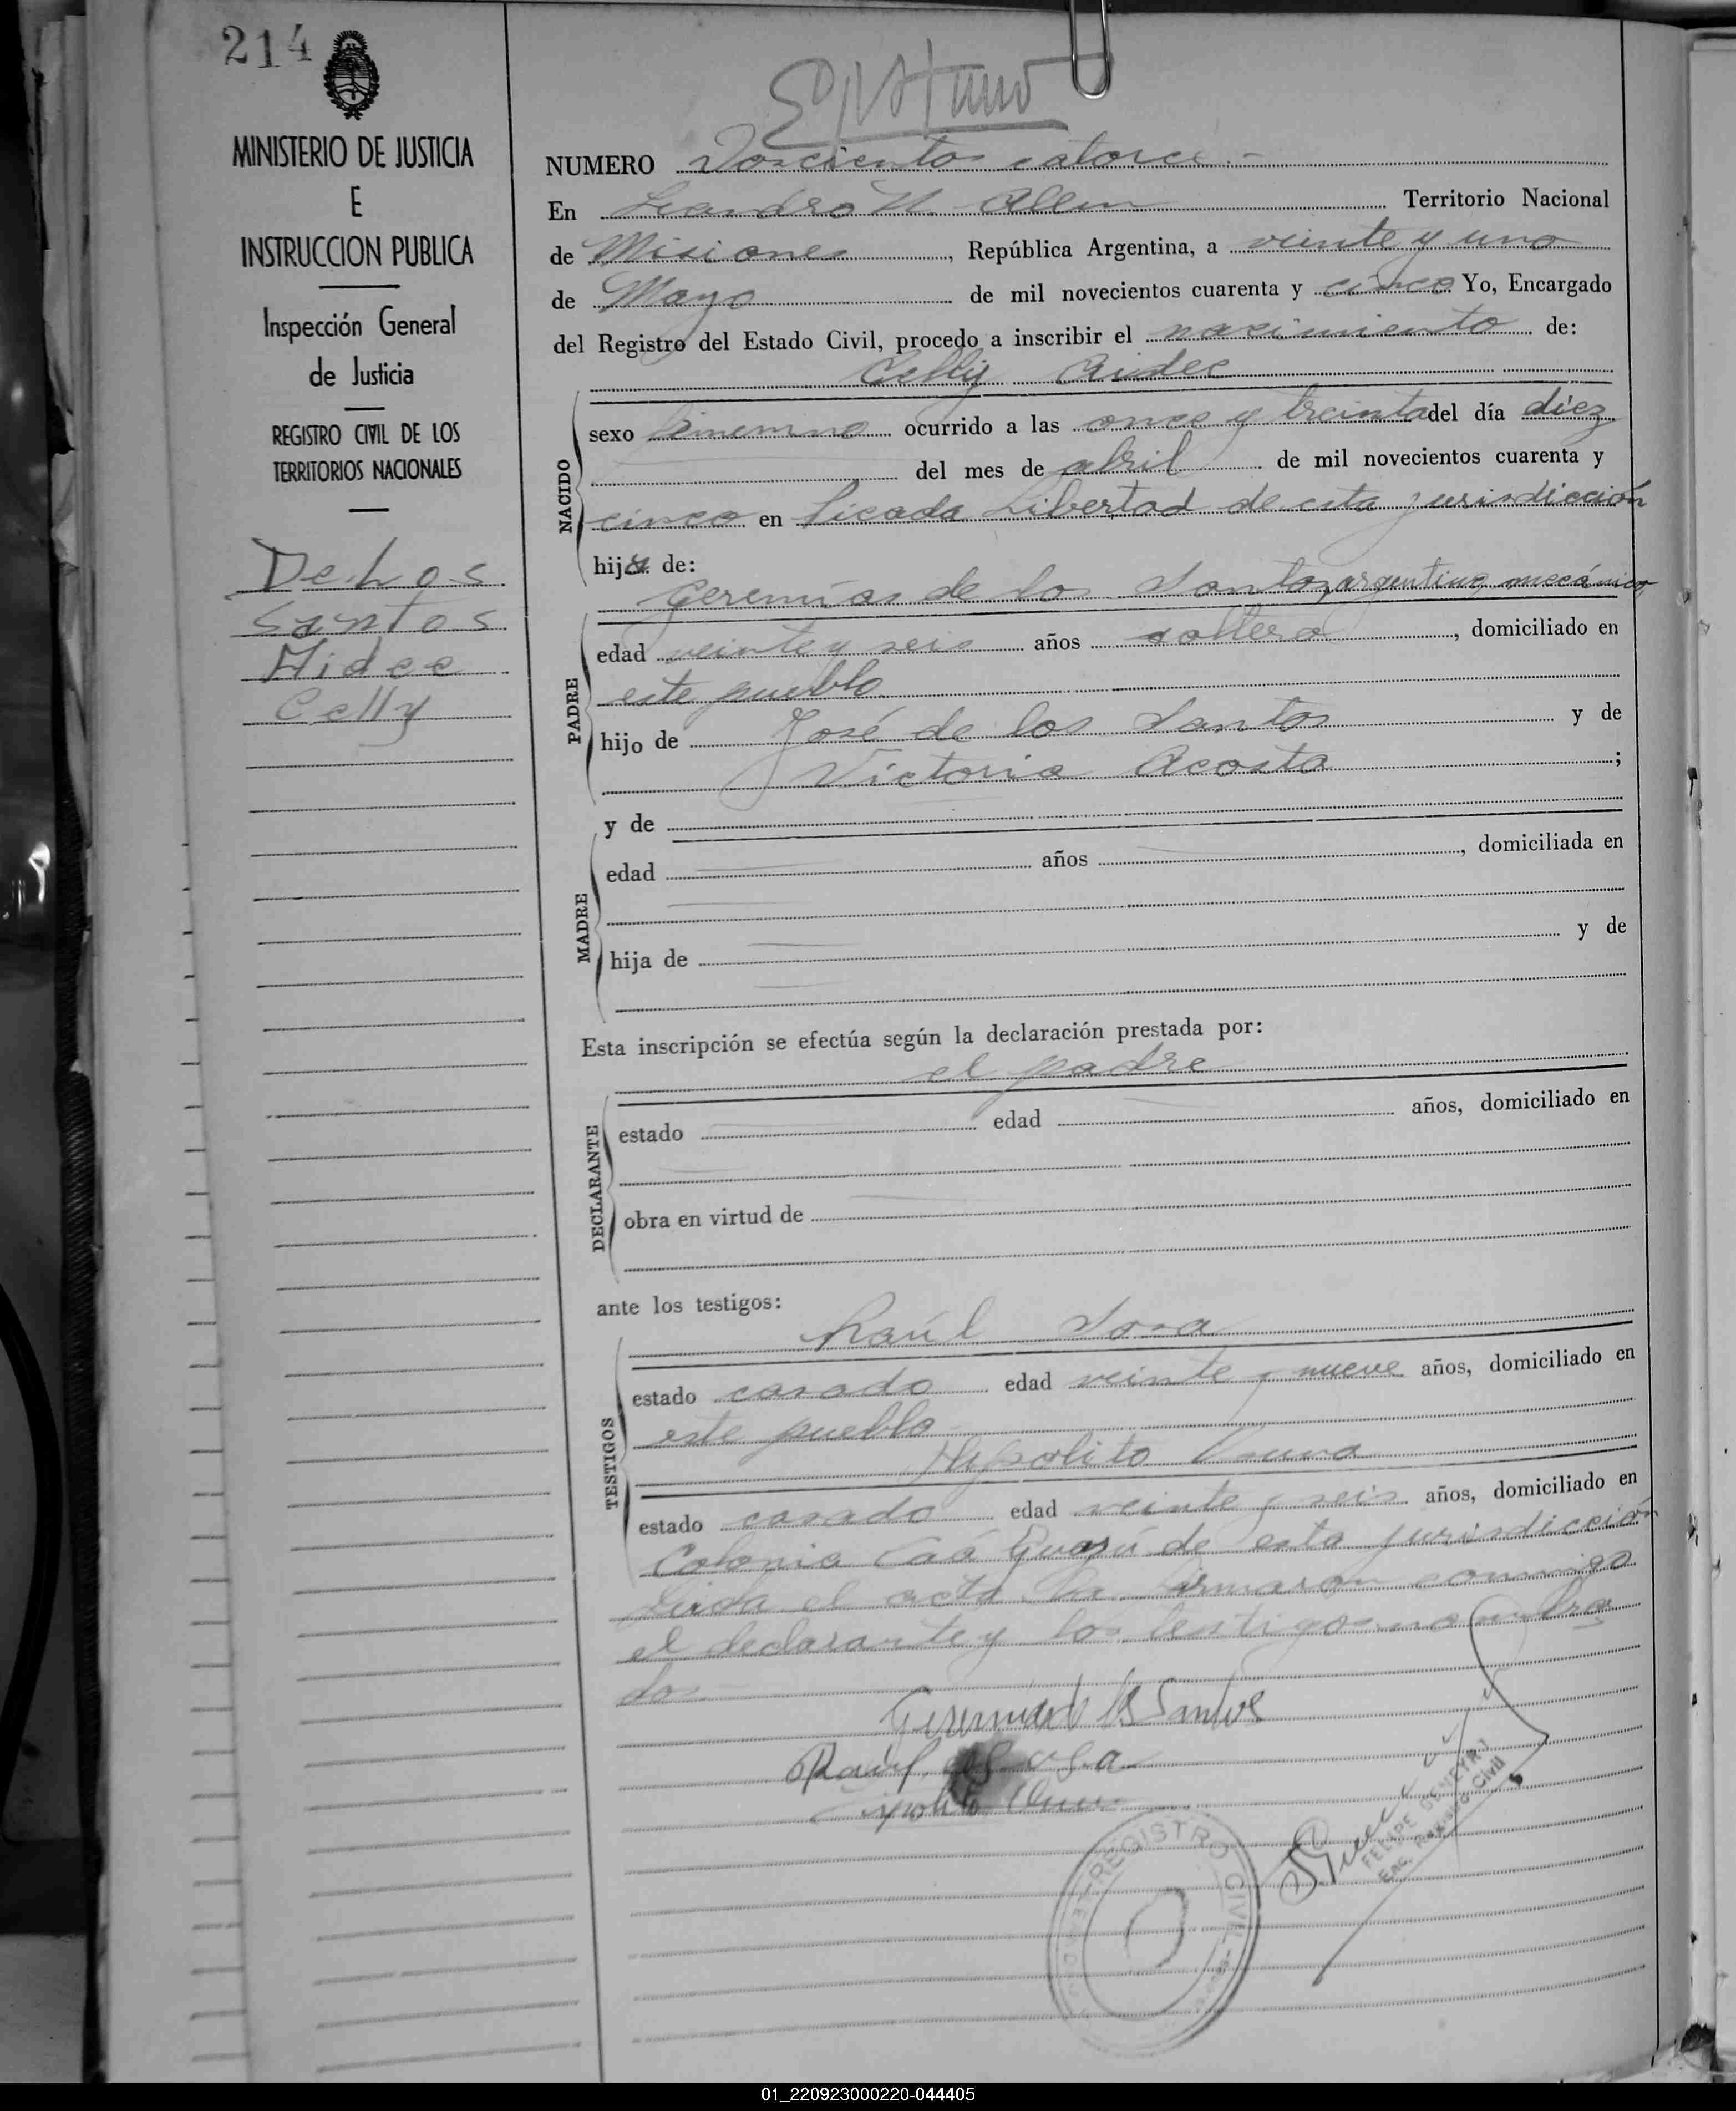 214
MINISTERIO DE JUSTICIA
E
INSTRUCCION PUBLICA
Inspección General
de Justicia
REGISTRO CIVIL DE LOS
TERRITORIOS NACIONALES
De Los
Santos
Aidee
Celly
NUMERO Doscientos catorce.-
En Leandro N. Allem Territorio Nacional
de Misiones, República Argentina, a veinte y uno
de Mayo de mil novecientos cuarenta y cinco Yo, Encargado
del Registro del Estado Civil, procedo a inscribir el nacimiento de:
Celly Aidee
NACIDO
sexo femenino ocurrido a las once y treinta del día diez
del mes de abril de mil novecientos cuarenta y
cinco en Picada Libertad de esta jurisdicción
hija de:
Geremías de los Santos, argentino, mecánico,
PADRE
edad veinte y seis años soltero, domiciliado en
este pueblo
hijo de José de los Santos y de
Victoria Acosta;
y de
MADRE
edad años, domiciliada en
hija de y de
Esta inscripción se efectúa según la declaración prestada por:
el padre
DECLARANTE
estado edad años, domiciliado en
obra en virtud de
ante los testigos:
Raúl Sosa
TESTIGOS
estado casado edad veinte y nueve años, domiciliado en
este pueblo
Hipolito
estado casado edad veinte y seis años, domiciliado en
Colonia Caá Guazú de esta jurisdicción
Leida el acta la firmaron conmigo
el declarante y los testigos nombra
dos
Geremias d l S Santos
Raúl Sosa
REGISTRO CIVIL
FELIPE
Enc. Registro Civil
01_220923000220-044405